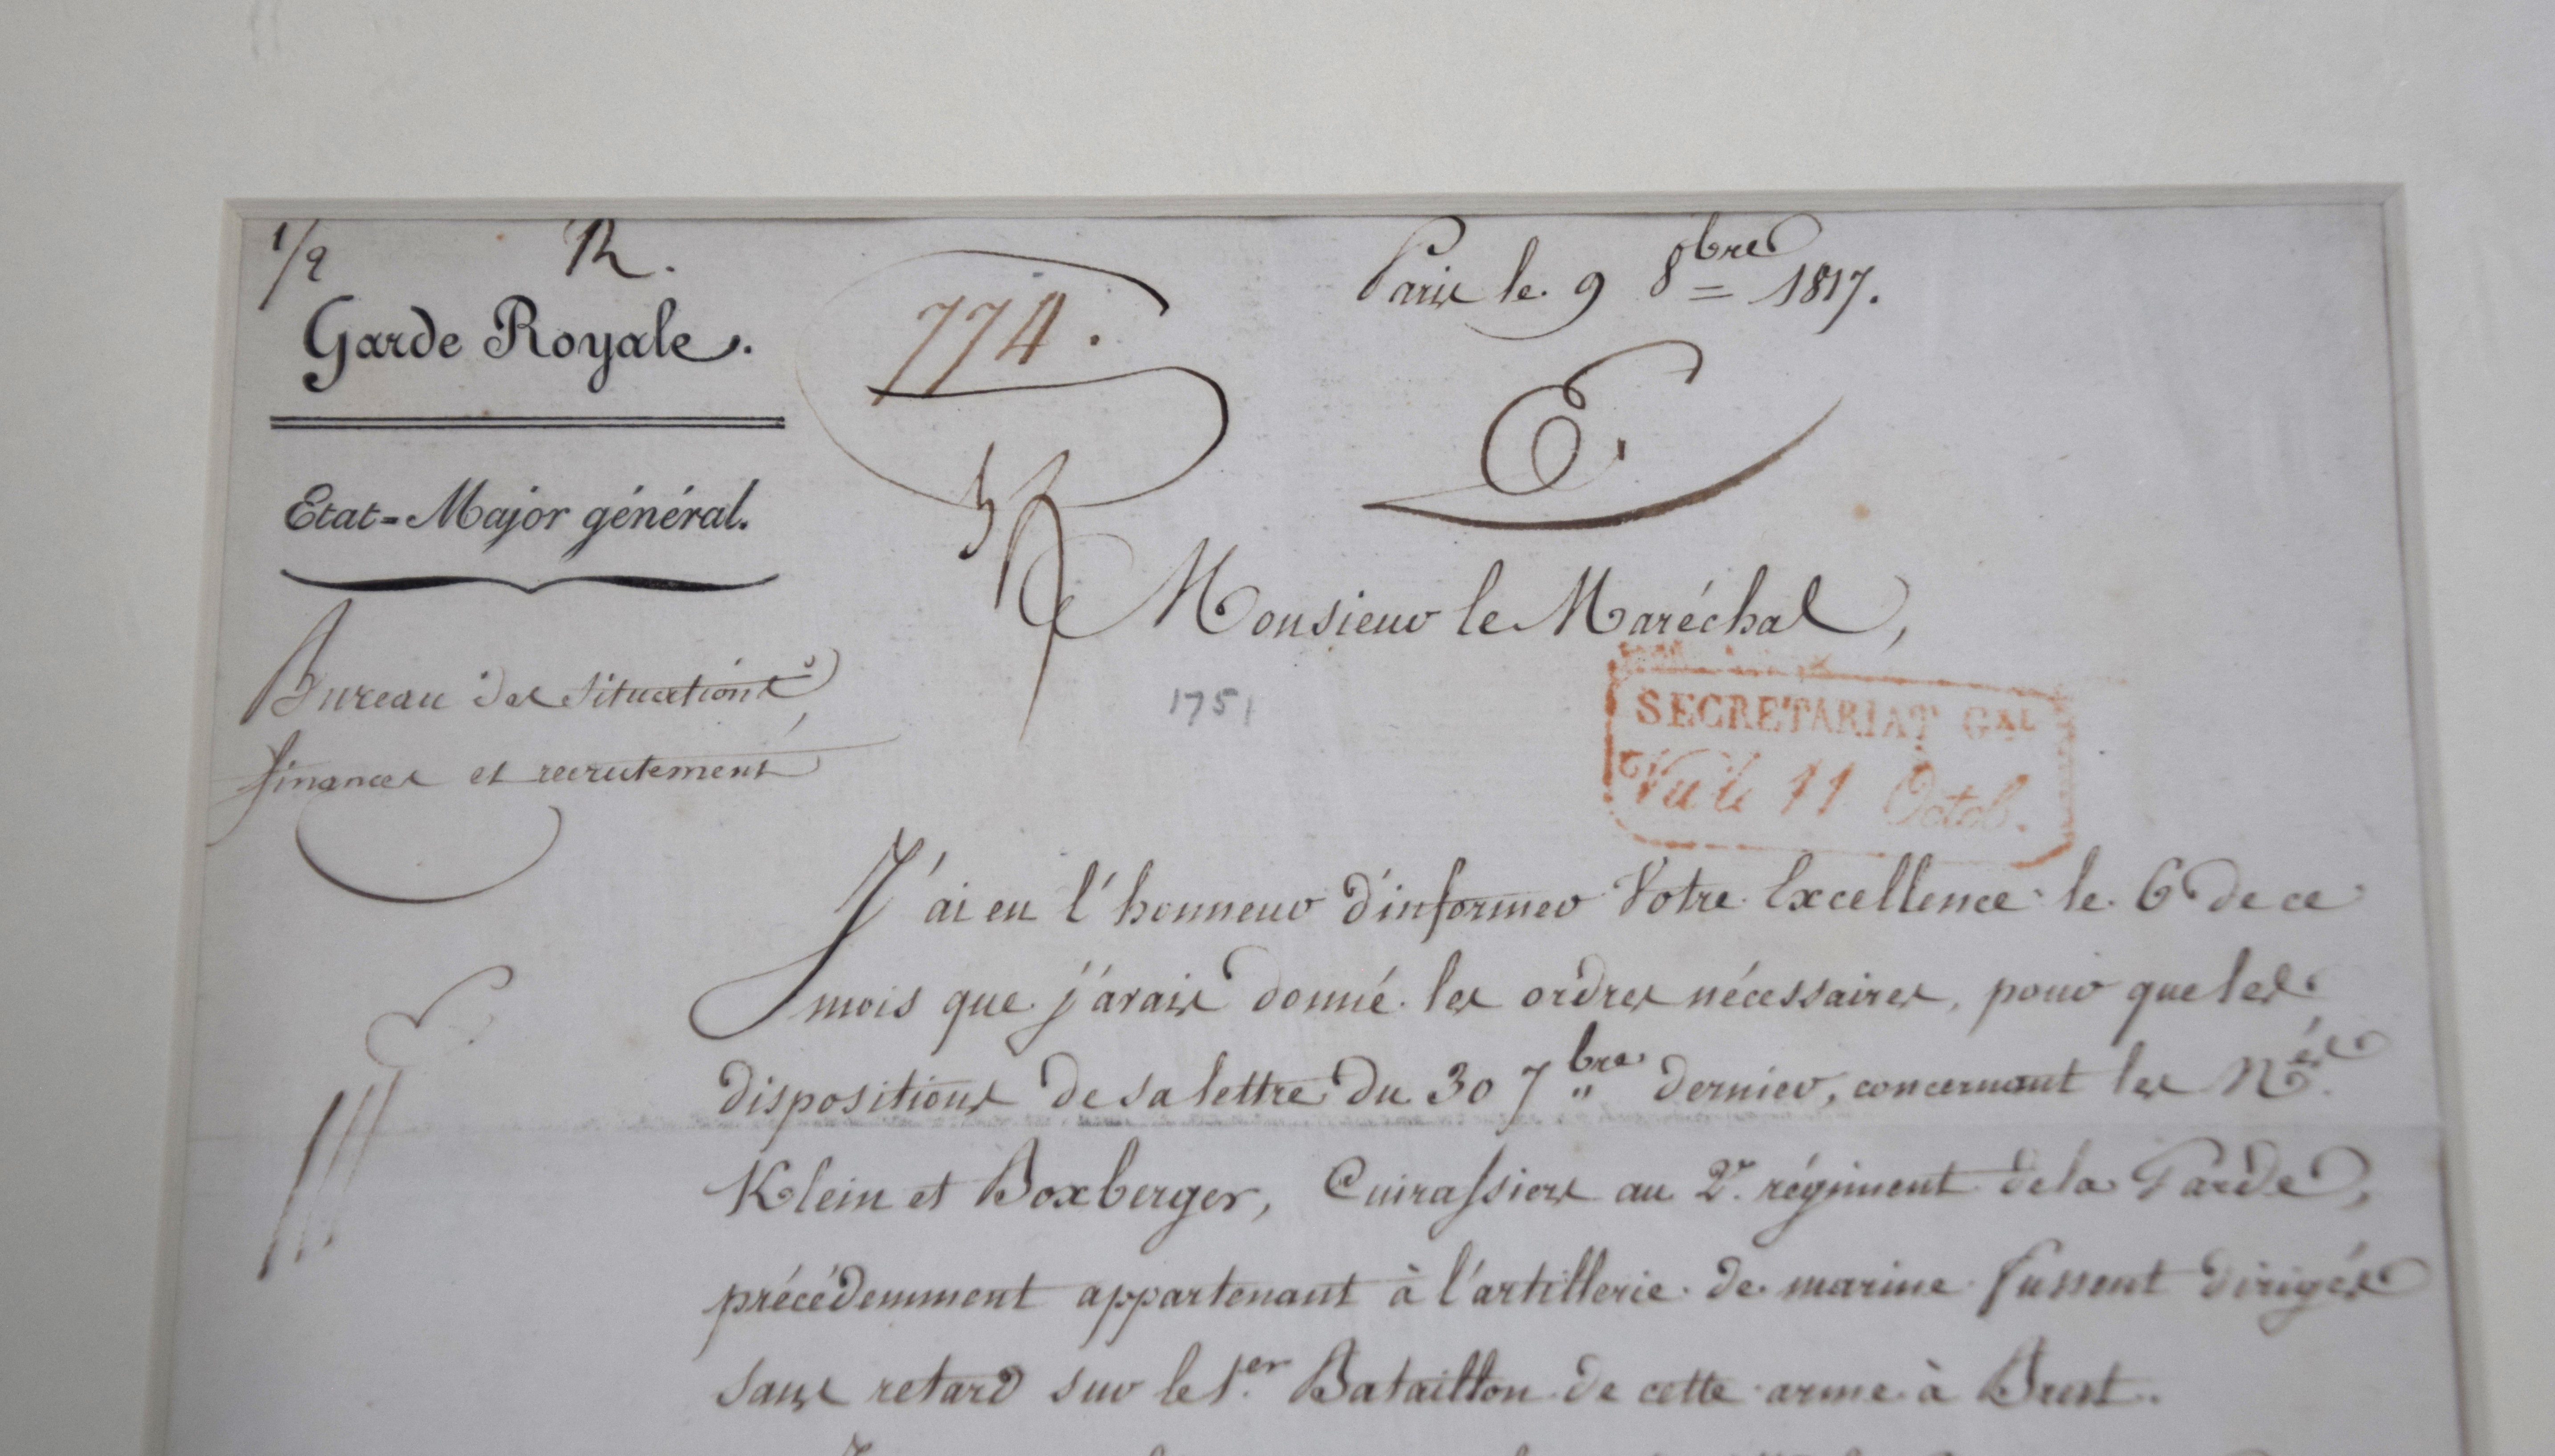 1/2 R.
Garde Royale.
774.
Paris le 9 8bre 1817.
E.
Etat-Major général.
Monsieur le Maréchal,
Bureau des Situations,
finances et recrutement
1751
SECRETARIAT GAL
Vu le 11 Octob.
J'ai eu l'honneur d'informer Votre Excellence le 6 de ce
mois que j'avais donné les ordres nécessaires, pour que les
dispositions de sa lettre du 30 7bre dernier, concernant les Nés
Klein et Boxberger, Cuirassiers au 2e. régiment de la Garde,
précédemment appartenant à l'artillerie de marine fussent dirigés
sans retard sur le 1er Bataillon de cette arme à Brest.